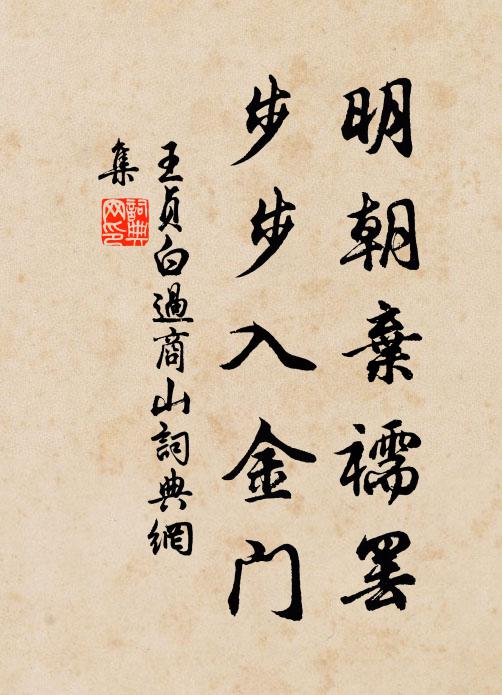 明朝棄襦罢
步步入金门
王贞白過商山詞典網
集
詞典
网印